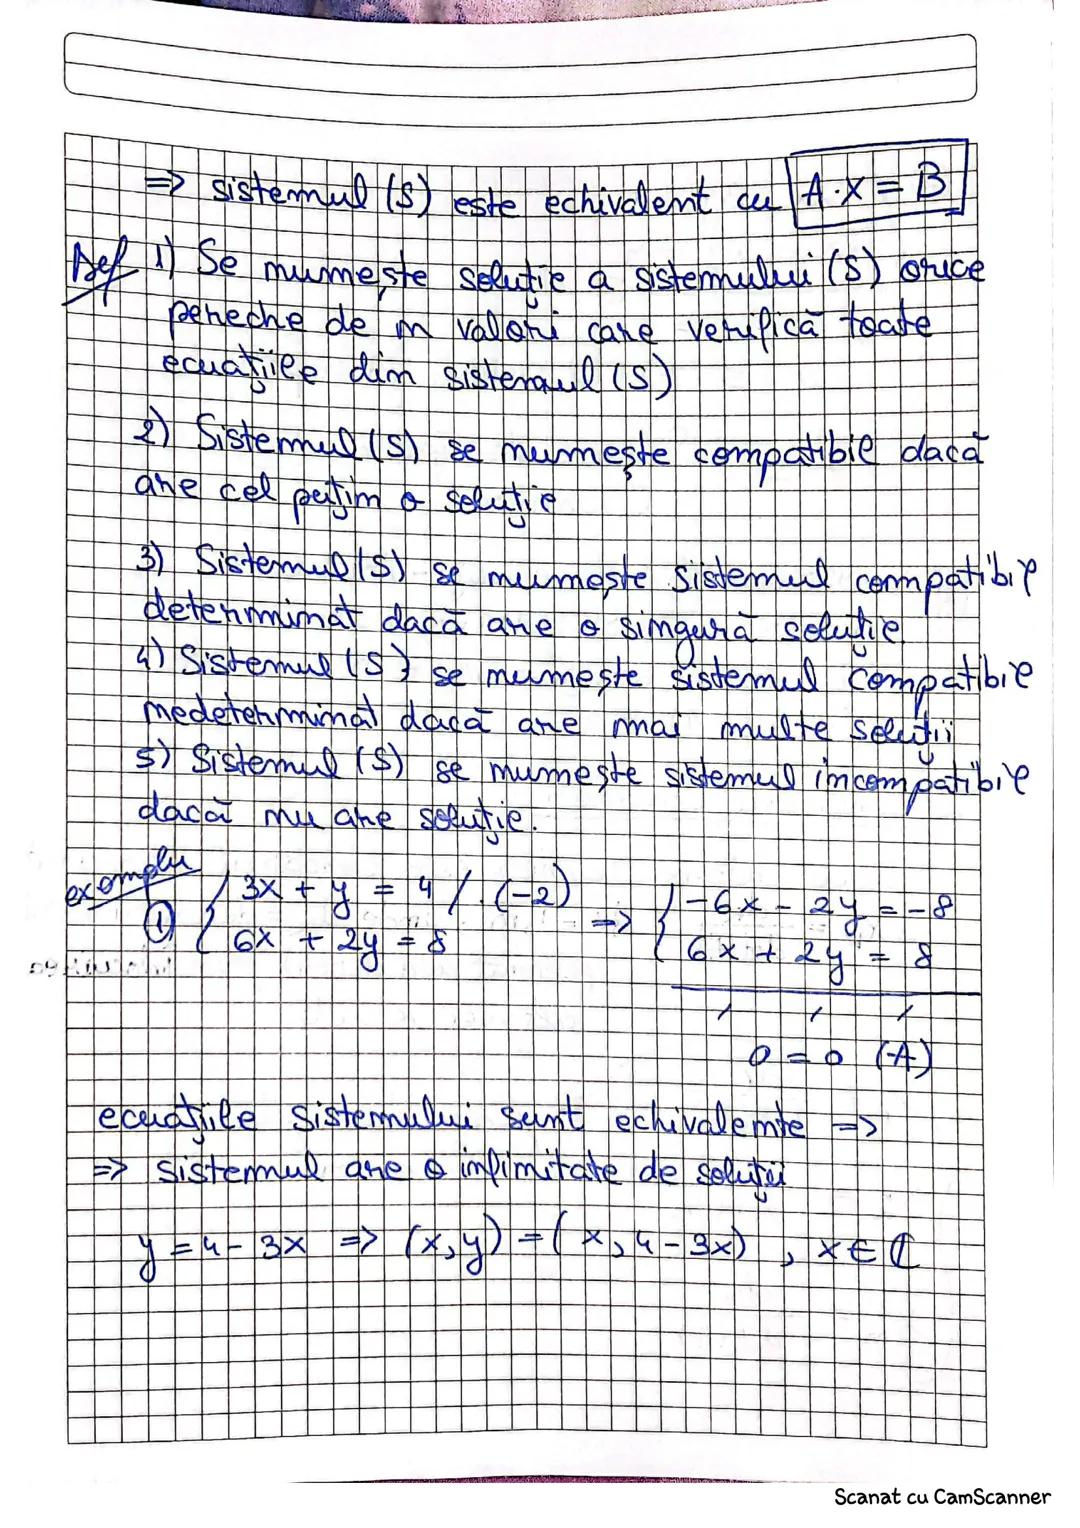 => sistemul (S) este echivalent cu A·X = B
Def 1) Se numește soluție a sistemului (S) orice
pereche de n valori care verifică toate
ecuațiile din sistemul (S)
2) Sistemul (S) se numește compatibil dacă
are cel puțin o soluție
3) Sistemul (S) se numește sistemul compatibil
determinat dacă are o singură soluție
4) Sistemul (S) se numește sistemul compatibil
nedeterminat dacă are mai multe soluții
5) Sistemul (S) se numește sistemul incompatibil
dacă nu are soluție.
exemplu
① { 3x + y = 4 /·(-2) => { -6x - 2y = -8
6x + 2y = 8 6x + 2y = 8
/ / /
0 = 0 (A)
ecuațiile sistemului sunt echivalente =>
=> sistemul are o infinitate de soluții
y = 4 - 3x => (x, y) = (x, 4 - 3x), x ∈ ℂ
Scanat cu CamScanner